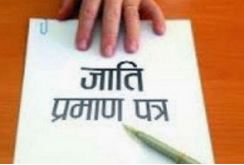 जाति
प्रमाण पत्र